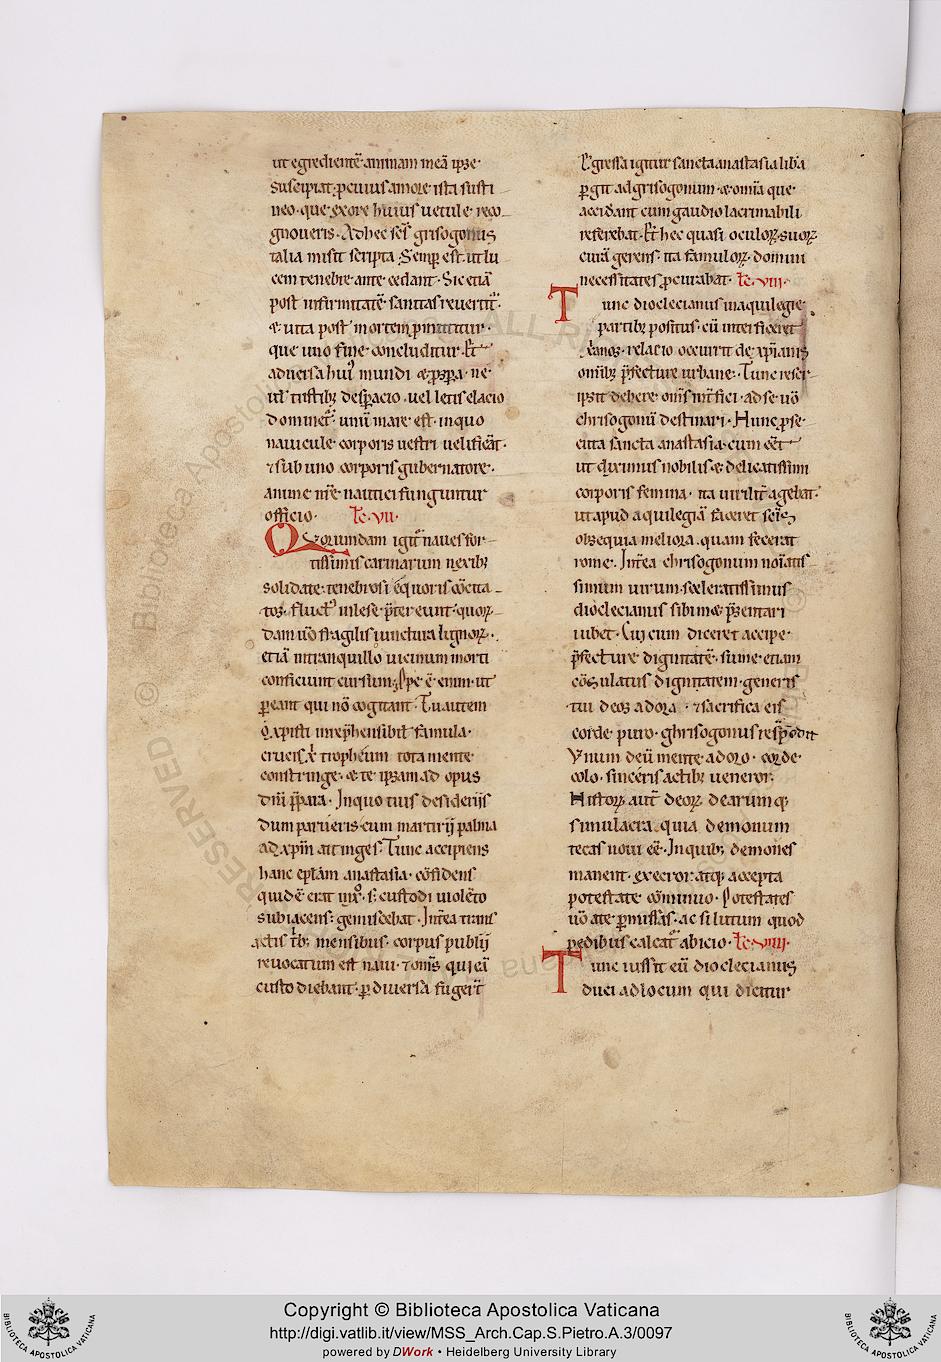 ut egredientē animam meā ipse·
suscipiat· ꝓ cuius amore ista susti
neo· que ex ore huius uetule reco
gnoueris. Ad hec sc̄s grisogonus
talia misit scripta. Semꝑ est ut lu
cem tenebre ante cedant· Sic etiā
post infirmitatē sanitas reuertit᷑·
& uita post mortem ꝓmittitur·
que uno fine concluditur· Et
aduersa huiꝰ mundi & ꝓspa· ne
ul̄ tristibꝫ desꝑacio· uel letis elacio
dominet᷑· unū mare est· in quo
nauicule corporis uestri uelificāt·
⁊ sub uno corporis gubernatore·
anime nr̄e nautici funguntur
officio· Lc̄· VII·
Quorumdam igit᷑ naues for-
tissimis carinarum nexibꝫ
solidate· tenebrosi ęquoris cōcita
tos· fluctꝰ illese p̄ter eunt· quorꝝ
dam u̅o fragilis iunctura lignorꝝ·
etiā in tranquillo uicinum morti
conficiunt cursum· Spe ē enim· ut
ꝑeant qui nō cogitant· Tu autem
o xp̄isti irrep̄hensibil̄ famula·
crucis xp̄i tropheum tota mente
constringe· & te ipsam ad opus
dn̄i p̄para· In quo tuis desiderijs
dum parueris· cum martirij palma
ad xp̄m attinges· Tunc accipiens
hanc ep̄lam anastasia· cōfidens
quidē erat in xp̄o· s; custodi uiolēto
subiacens· gemiscebat· Intēa trans
actis tb᷒; mensibus· corpus publij
reuocatum est naui· ⁊ om̄s qui eā
custodiebant· ꝑ diuersa fuger̄t
Egressa igitur sancta anastasia liba
ꝑgit ad grisogonum· & om̄ia que·
accidant cum gaudio lacrimabili
referebat· Et hec quasi oculorꝝ suorꝝ
curā gerens· ita famulorꝝ domini
necessitates ꝓcurabat· Lc̄· VIII·
Tunc dioclecianus in aquilegie
partibꝫ positus· cū interficeret
xp̄ianos· relacio occurrit de xp̄ianis
om̄ibꝫ p̄fecture urbane· Tunc rescr-
ipsit debere· om̄s int̄fici· ad se u̅o
chrisogonū destinari· Hunc ꝓse
cuta sancta anastasia· cum eēt
ut diximus nobilis· & delicatissimi
corporis femina· ita uirilit᷑ agebat·
ut apud aquilegiā faceret sc̄is
obsequia meliora· quam fecerat
rome· Int̄ea chrisogonum noīatis
simum uirum· sceleratissimus
dioclecianus sibimet p̄sentari
iubet· Cui cum diceret accipe·
p̄fecture dignitatē· sume etiam
cōsulatus dignitatem· generis
tui deos adora· ⁊ sacrifica eis
corde puro· ghrisogonus respōdit
Vnum deū mente adoro· corde·
colo· sinceris actibꝫ ueneror·
Istorꝝ aut̄ deorꝝ dearumqꝫ
simulacra· quia demonum
tecas noui eē· In quibꝫ demones
manent· execror atqꝫ accepta
potestate cōminuo· Potestates
u̅o a te ꝑmissas· ac si lutum quod
pedibus calcat᷑ abicio· Lc̄· VIIII·
Tunc iussit eū dioclecianus
duci ad locum qui dicitur
Copyright © Biblioteca Apostolica Vaticana
http://digi.vatlib.it/view/MSS_Arch.Cap.S.Pietro.A.3/0097
powered by DWork • Heidelberg University Library
BIBLIOTECA APOSTOLICA VATICANA
BIBLIOTECA APOSTOLICA VATICANA